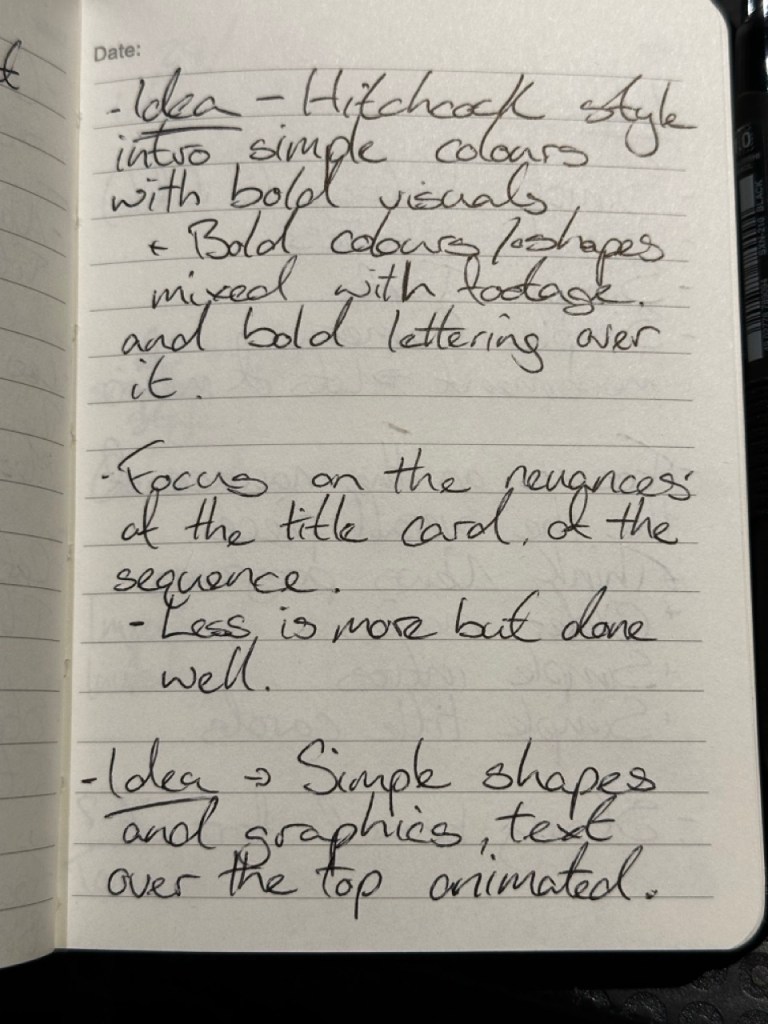 Date:
- Idea - Hitchcock style
intro simple colours
with bold visuals
+ Bold colours / shapes
mixed with footage.
and bold lettering over
it.
- Focus on the neuances
of the title card, of the
sequence.
- Less is more but done
well.
- Idea → Simple shapes
and graphics, text
over the top animated.